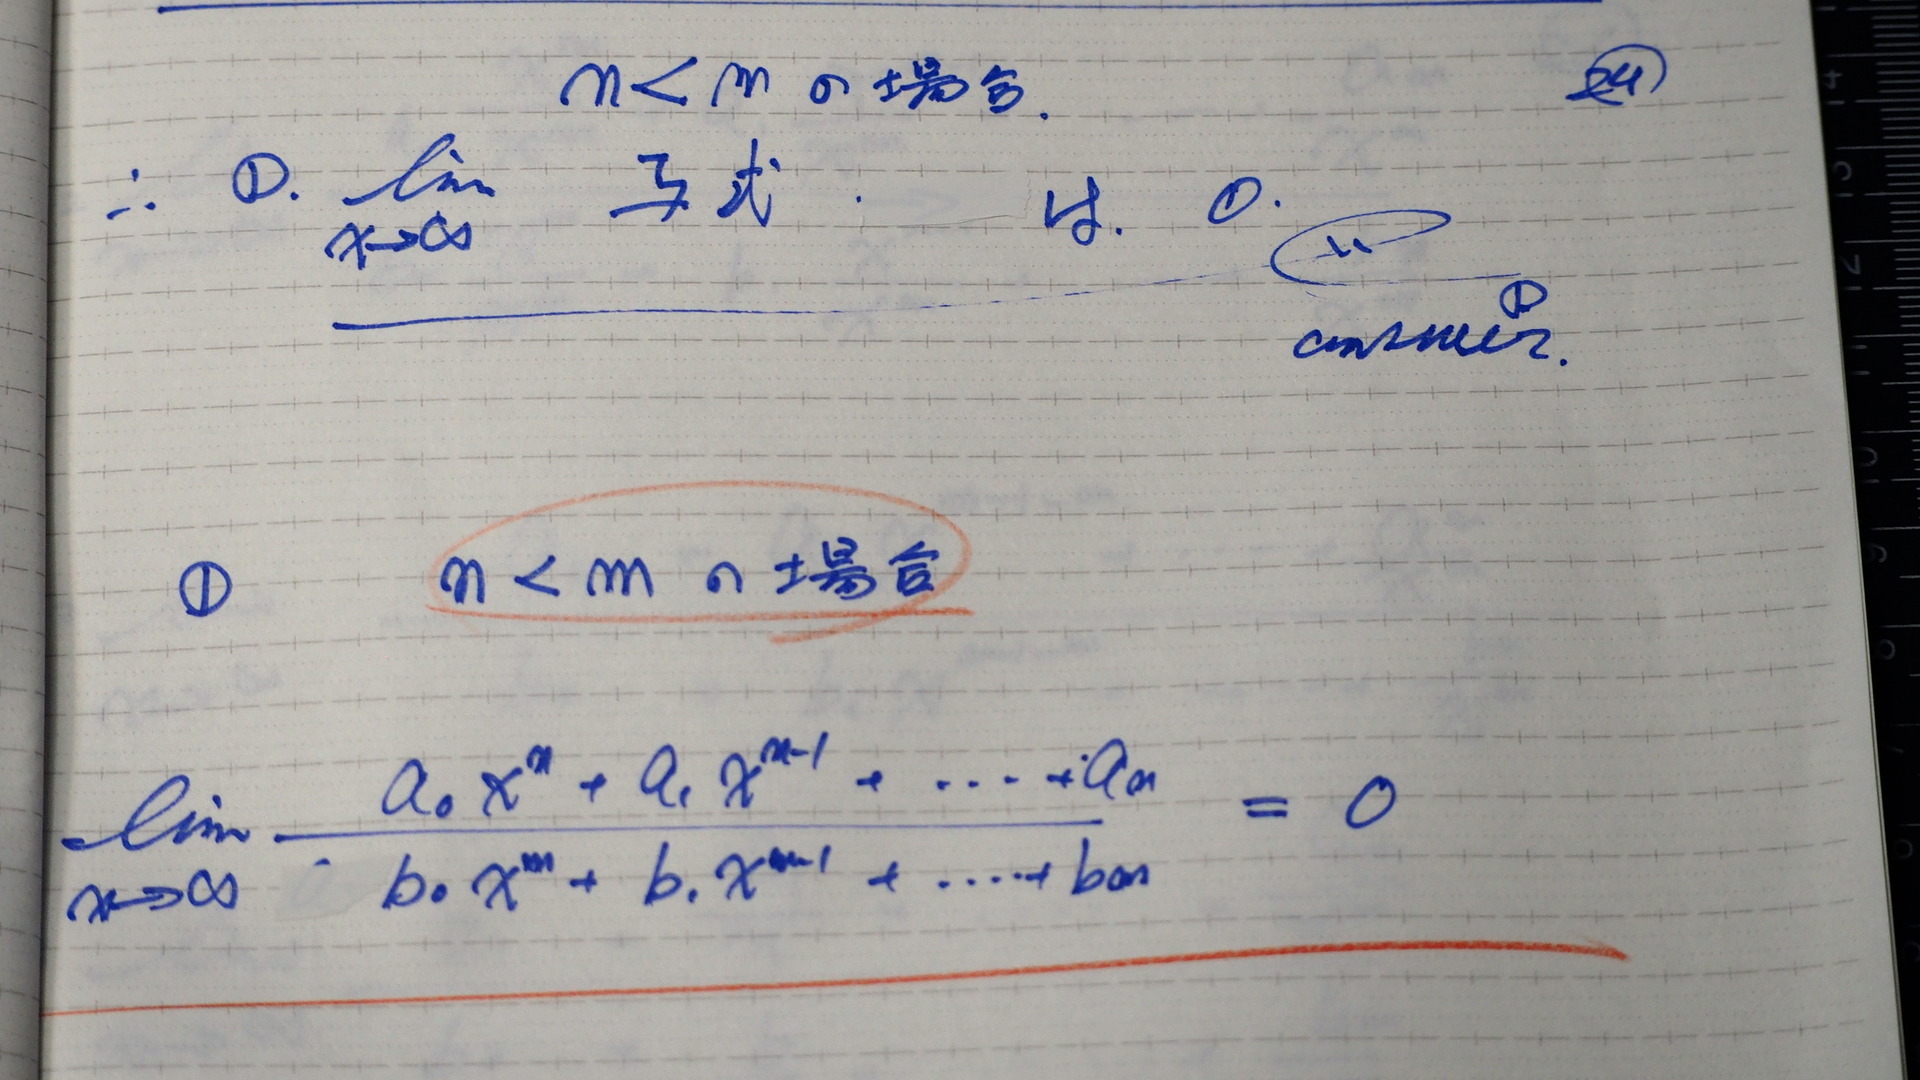 n < m の場合. 24
∴ ①. lim x→∞ 与式. は. 0.
① answer.
① n < m の場合
lim x→∞ (a₀xⁿ + a₁xⁿ⁻¹ + ‥‥ + aₙ) / (b₀xᵐ + b₁xᵐ⁻¹ + ‥‥ + bₘ) = 0